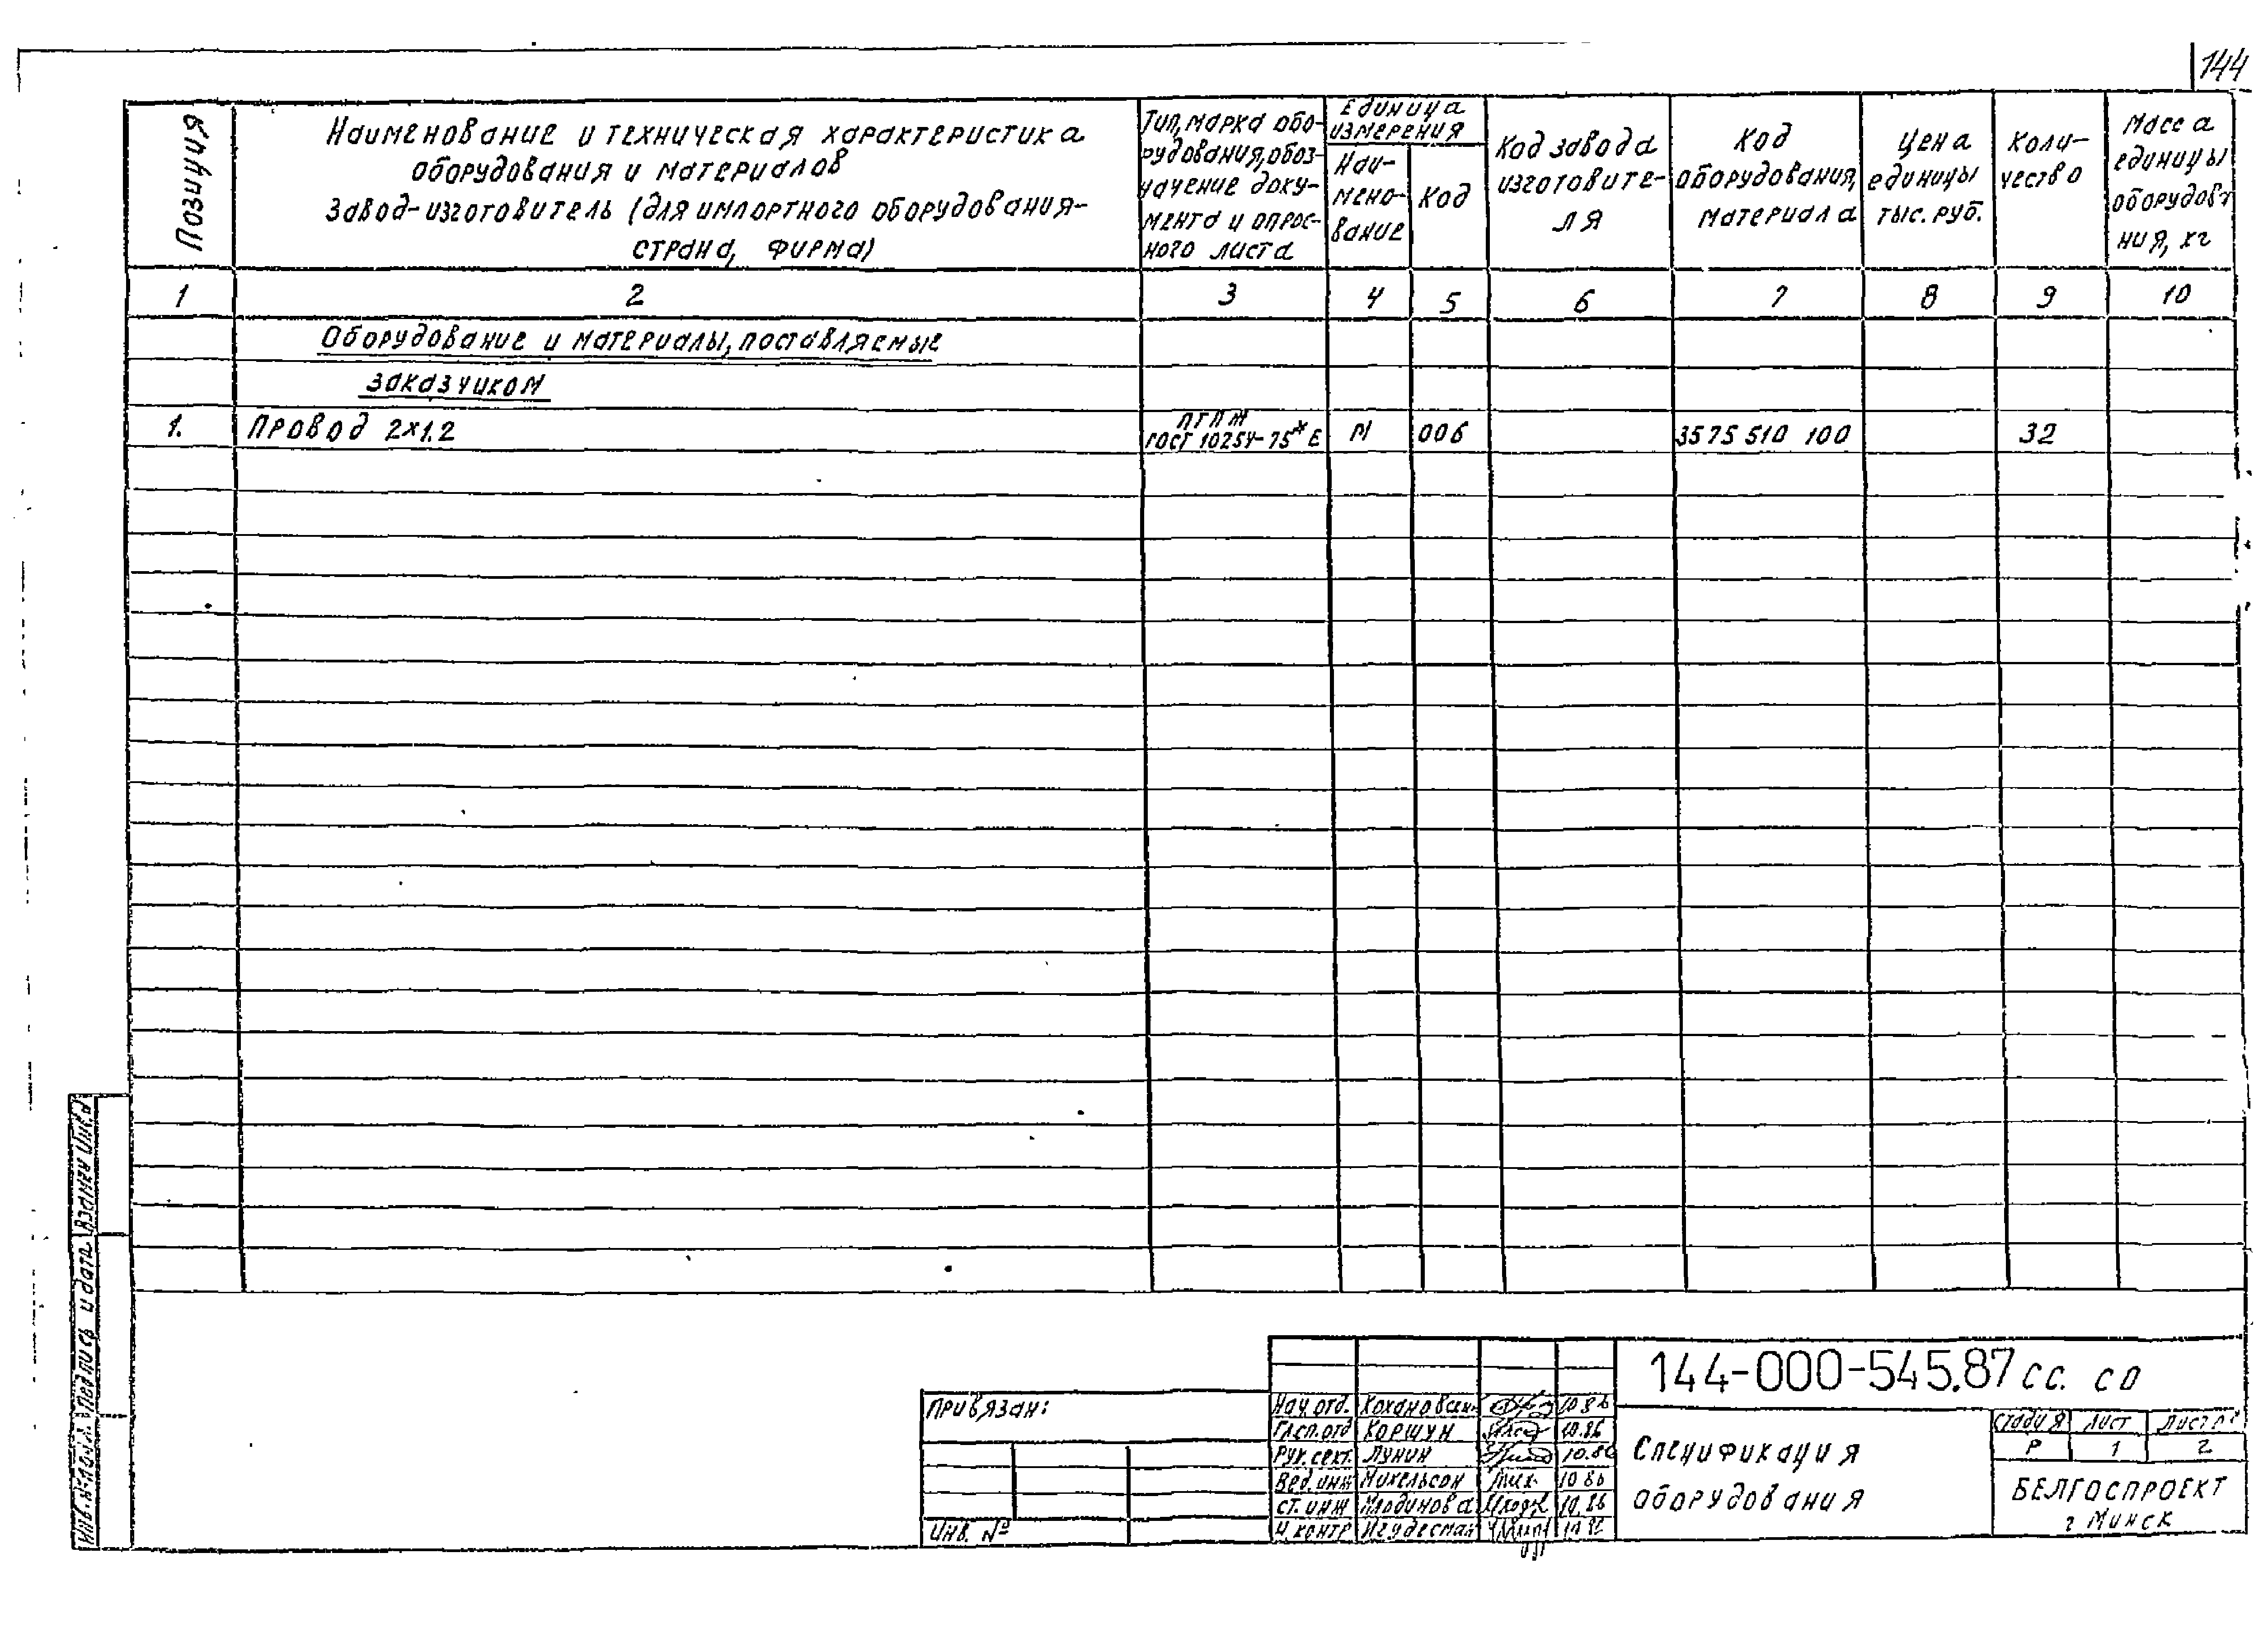 144
Позиция
Наименование и техническая характеристика
оборудования и материалов
Завод-изготовитель (для импортного оборудования-
страна, фирма)
Тип, марка обо-
рудования, обоз-
начение доку-
мента и опрос-
ного листа
Единица
измерения
Наи-
мено-
вание
Код
Код завода
изготовите-
ля
Код
оборудования,
материала
Цена
единицы
тыс. руб.
Коли-
чество
Масса
единицы
оборудова
ния, кг
1 2 3 4 5 6 7 8 9 10
Оборудование и материалы, поставляемые
заказчиком
1. Провод 2×1.2 ПГПЖ
ГОСТ 10254-75* Е М 006 3575 510 100 32
Взамен Инв.
Подпись и дата
Инв. № подл.
Привязан:
Инв. №
Нач. отд. 10.86
Гл.сп.отд Коршун 10.86
Рук. сект. Лунин 10.86
Вед. инж Михельсон 10 86
Ст. инж 10.86
Н. контр
144-000-545.87 СС. СО
Спецификация
оборудования
Стадия Лист Лист
Р 1 2
БЕЛГОСПРОЕКТ
г Минск